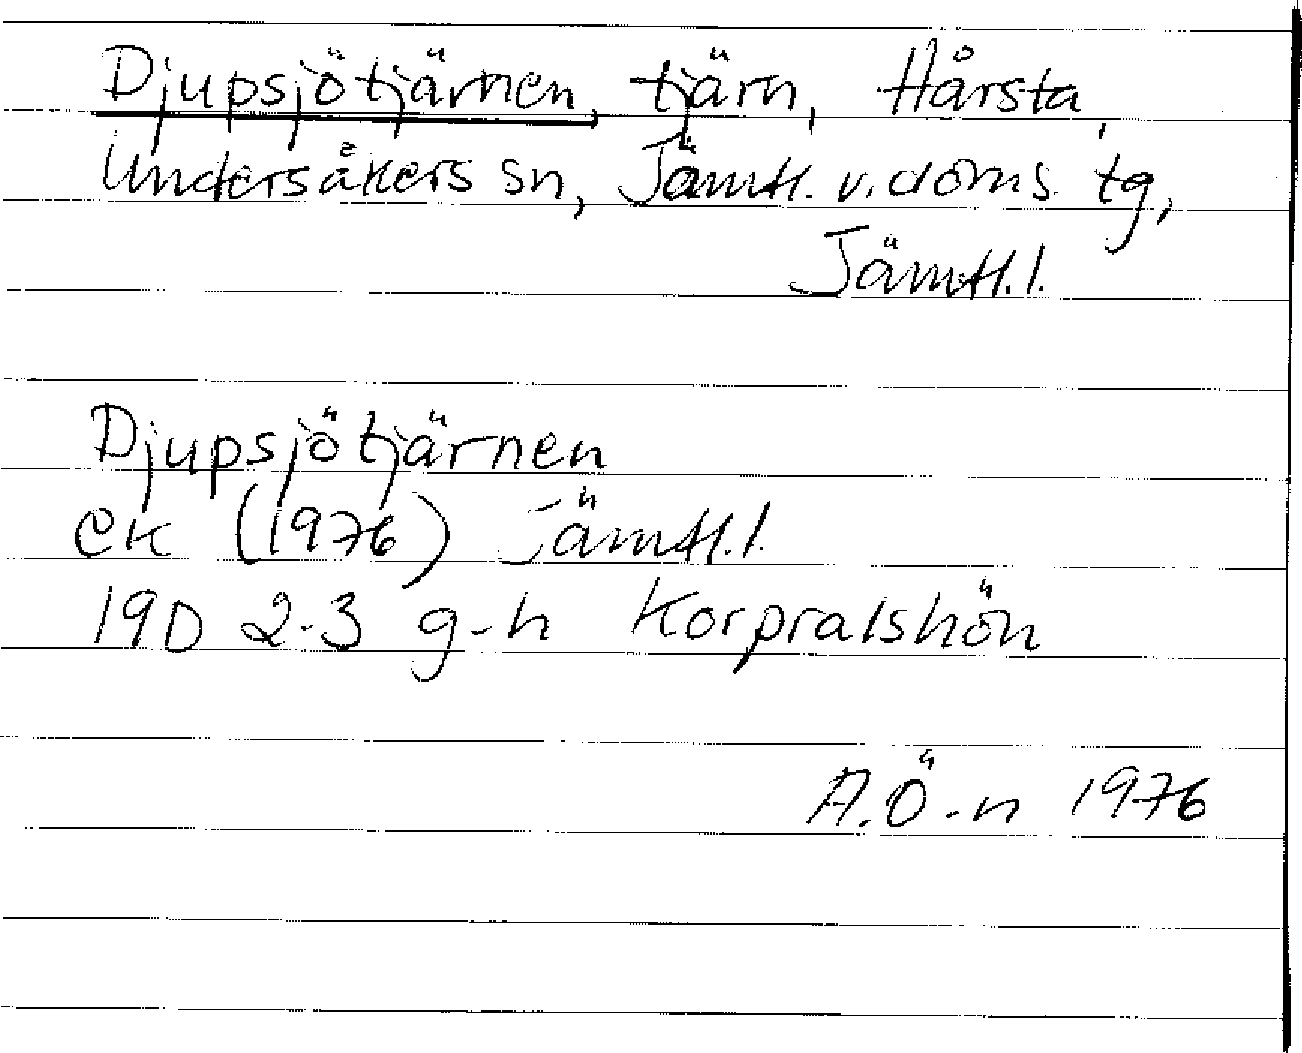 Djupsjötjärnen, tjärn, Hårsta,
Undersåkers sn, Jämtl. v. doms. tg,
Jämtl. l.
Djupsjötjärnen
ek (1976) Jämtl. l.
19D 2-3 g-h Korpralshön
A. Ö-n 1976